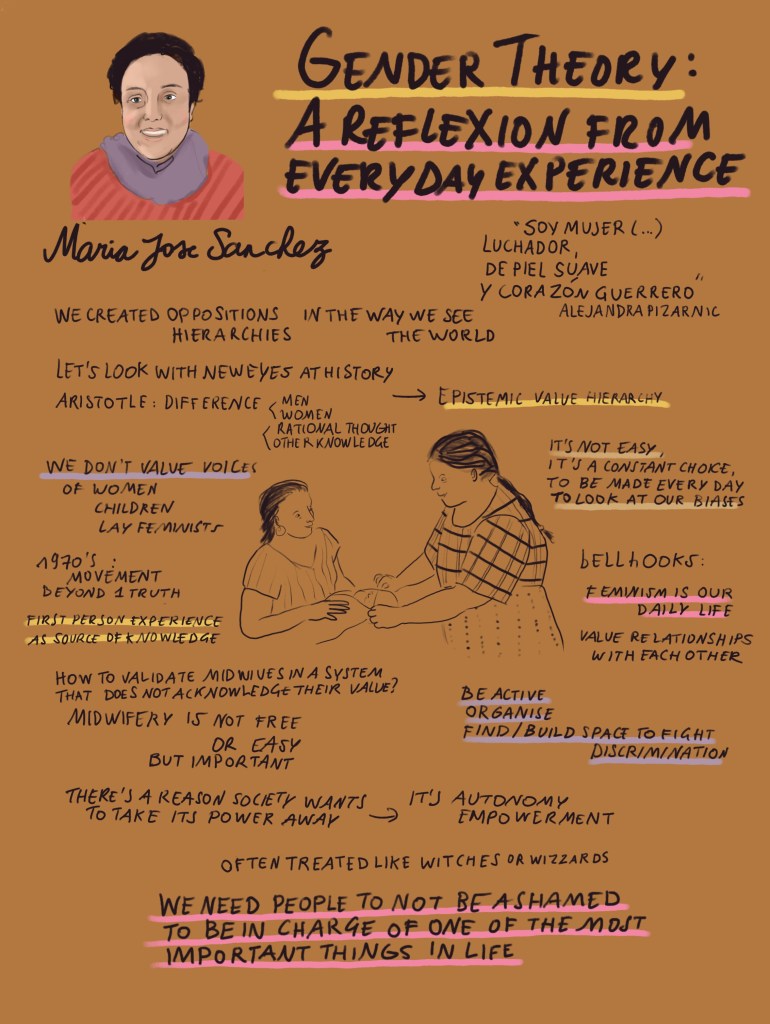 GENDER THEORY:
A REFLEXION FROM
EVERYDAY EXPERIENCE
Maria Jose Sanchez
"SOY MUJER (...)
LUCHADOR,
DE PIEL SUAVE
Y CORAZÓN GUERRERO"
ALEJANDRA PIZARNIC
WE CREATED OPPOSITIONS IN THE WAY WE SEE
HIERARCHIES THE WORLD
LET'S LOOK WITH NEW EYES AT HISTORY
ARISTOTLE: DIFFERENCE < MEN
WOMEN
< RATIONAL THOUGHT
OTHER KNOWLEDGE
→ EPISTEMIC VALUE HIERARCHY
WE DON'T VALUE VOICES
OF WOMEN
CHILDREN
LAY FEMINISTS
IT'S NOT EASY,
IT'S A CONSTANT CHOICE,
TO BE MADE EVERY DAY
TO LOOK AT OUR BIASES
1970'S:
MOVEMENT
BEYOND 1 TRUTH
FIRST PERSON EXPERIENCE
AS SOURCE OF KNOWLEDGE
bELL hOOKS:
FEMINISM IS OUR
DAILY LIFE
VALUE RELATIONSHIPS
WITH EACH OTHER
HOW TO VALIDATE MIDWIVES IN A SYSTEM
THAT DOES NOT ACKNOWLEDGE THEIR VALUE?
MIDWIFERY IS NOT FREE
OR EASY
BUT IMPORTANT
BE ACTIVE
ORGANISE
FIND/BUILD SPACE TO FIGHT
DISCRIMINATION
THERE'S A REASON SOCIETY WANTS
TO TAKE ITS POWER AWAY → IT'S AUTONOMY
EMPOWERMENT
OFTEN TREATED LIKE WITCHES OR WIZZARDS
WE NEED PEOPLE TO NOT BE ASHAMED
TO BE IN CHARGE OF ONE OF THE MOST
IMPORTANT THINGS IN LIFE